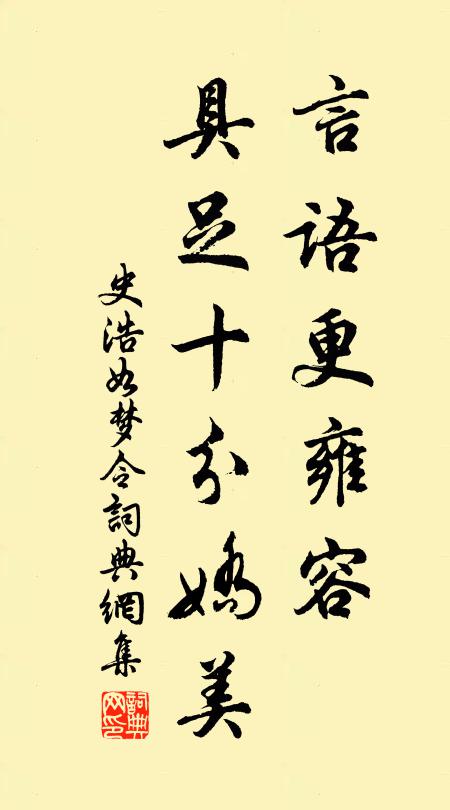 言語更雍容
具足十分嬌美
史浩如梦令詞典網集
詞典網印